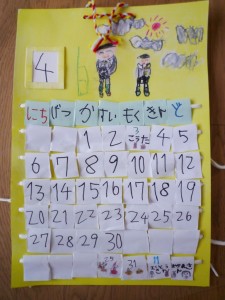 4
にち げつ か すい もく きん ど
1 2 3 4 5
6 7 8 9 10 11 12
13 14 15 16 17 18 19
20 21 22 23 24 25 26
27 28 29 30
31